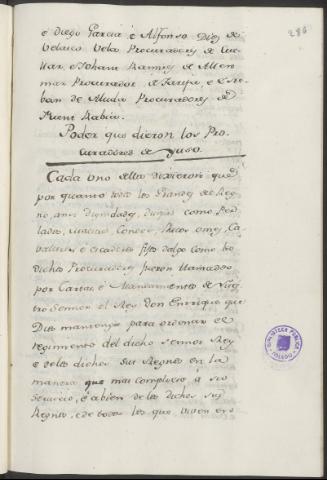 286
é Diego Garcia é Alfonso Diez de
Velasco Procuradores de Cue
llar, é Johan Ramirez de
Procurador de Tarifa é
ban de Procuradores de
Rabia.
Poder que dieron los Pro
curadores de yuso.
Cada uno dellos dixeron que
por quanto todos los Grandes del Reg
no, como Per
lados, Condes, Ricos omes, Ca
valleros, é escuderos fijos dalgo como los
dichos Procuradores fueron llamados
por Cartas, é Mandamientos de Nues
tro Sennor el Rey Don Enrrique que
Dios mantenga para ordenar el
regimiento del dicho sennor Rey
é delos dichos sus Regnos en la
manera que mas compliese á su
servicio, é abien de los dichos sus
Regnos, é de todos los que viven en
BIBLIOTECA PUBLICA
TOLEDO